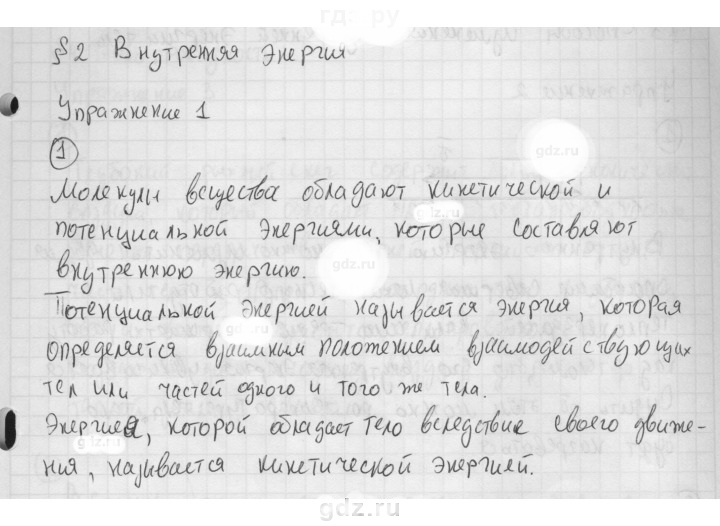 гдз.ру
§2 Внутренняя энергия
Упражнение 1
1
Молекулы вещества обладают кинетической и
потенциальной энергиями, которые составляют
внутреннюю энергию.
Потенциальной энергией называется энергия, которая
определяется взаимным положением взаимодействующих
тел или частей одного и того же тела.
Энергия, которой обладает тело вследствие своего движе-
ния, называется кинетической энергией.
gdz.ru
gdz.ru
gdz.ru
gdz.ru
gdz.ru
gdz.ru